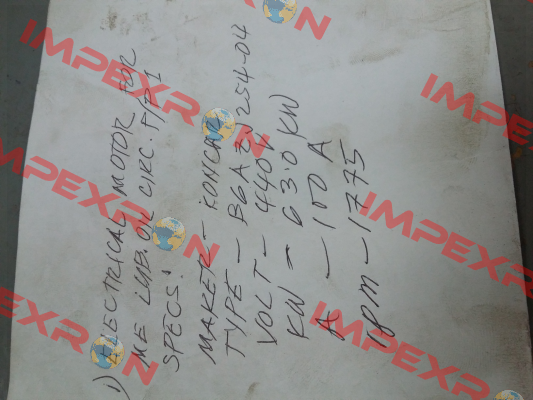 1) ELECTRICAL MOTOR FOR
ME LUB. OIL CIRC. P/P 1
SPECS:
MAKER - KONCAR
TYPE - B6AZJ 254-04
VOLT - 440V
KW - 63.0 KW
A - 100 A
rpm - 1775
IMPEXRON
IMPEXRON
IMPEXRON
IMPEXRON
IMPEXRON
IMPEXRON